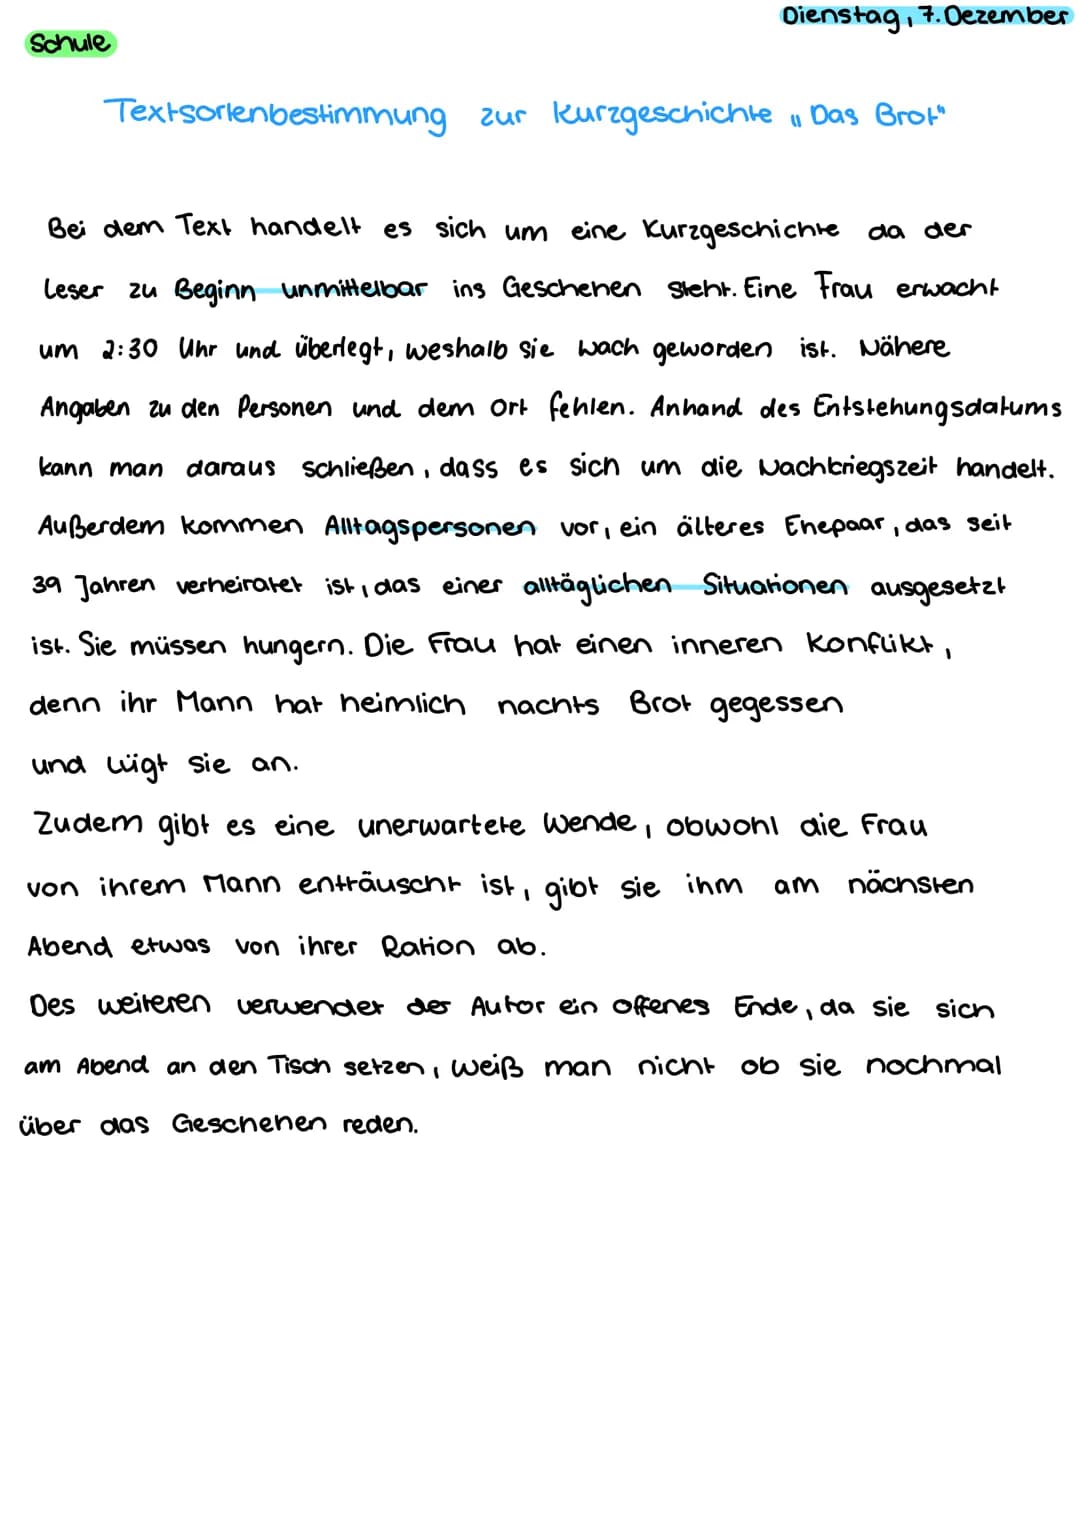 Dienstag, 7. Dezember
Schule
Textsortenbestimmung zur Kurzgeschichte „Das Brot"
Bei dem Text handelt es sich um eine Kurzgeschichte da der
Leser zu Beginn unmittelbar ins Geschehen steht. Eine Frau erwacht
um 2:30 Uhr und überlegt, weshalb sie wach geworden ist. Nähere
Angaben zu den Personen und dem Ort fehlen. Anhand des Entstehungsdatums
kann man daraus schließen, dass es sich um die Nachkriegszeit handelt.
Außerdem kommen Alltagspersonen vor, ein älteres Ehepaar, das seit
39 Jahren verheiratet ist, das einer alltäglichen Situationen ausgesetzt
ist. Sie müssen hungern. Die Frau hat einen inneren Konflikt,
denn ihr Mann hat heimlich nachts Brot gegessen
und lügt sie an.
Zudem gibt es eine unerwartete Wende, obwohl die Frau
von ihrem Mann enträuscht ist, gibt sie ihm am nächsten
Abend etwas von ihrer Ration ab.
Des weiteren verwendet der Autor ein offenes Ende, da sie sich
am Abend an den Tisch setzen, weiß man nicht ob sie nochmal
über das Geschehen reden.